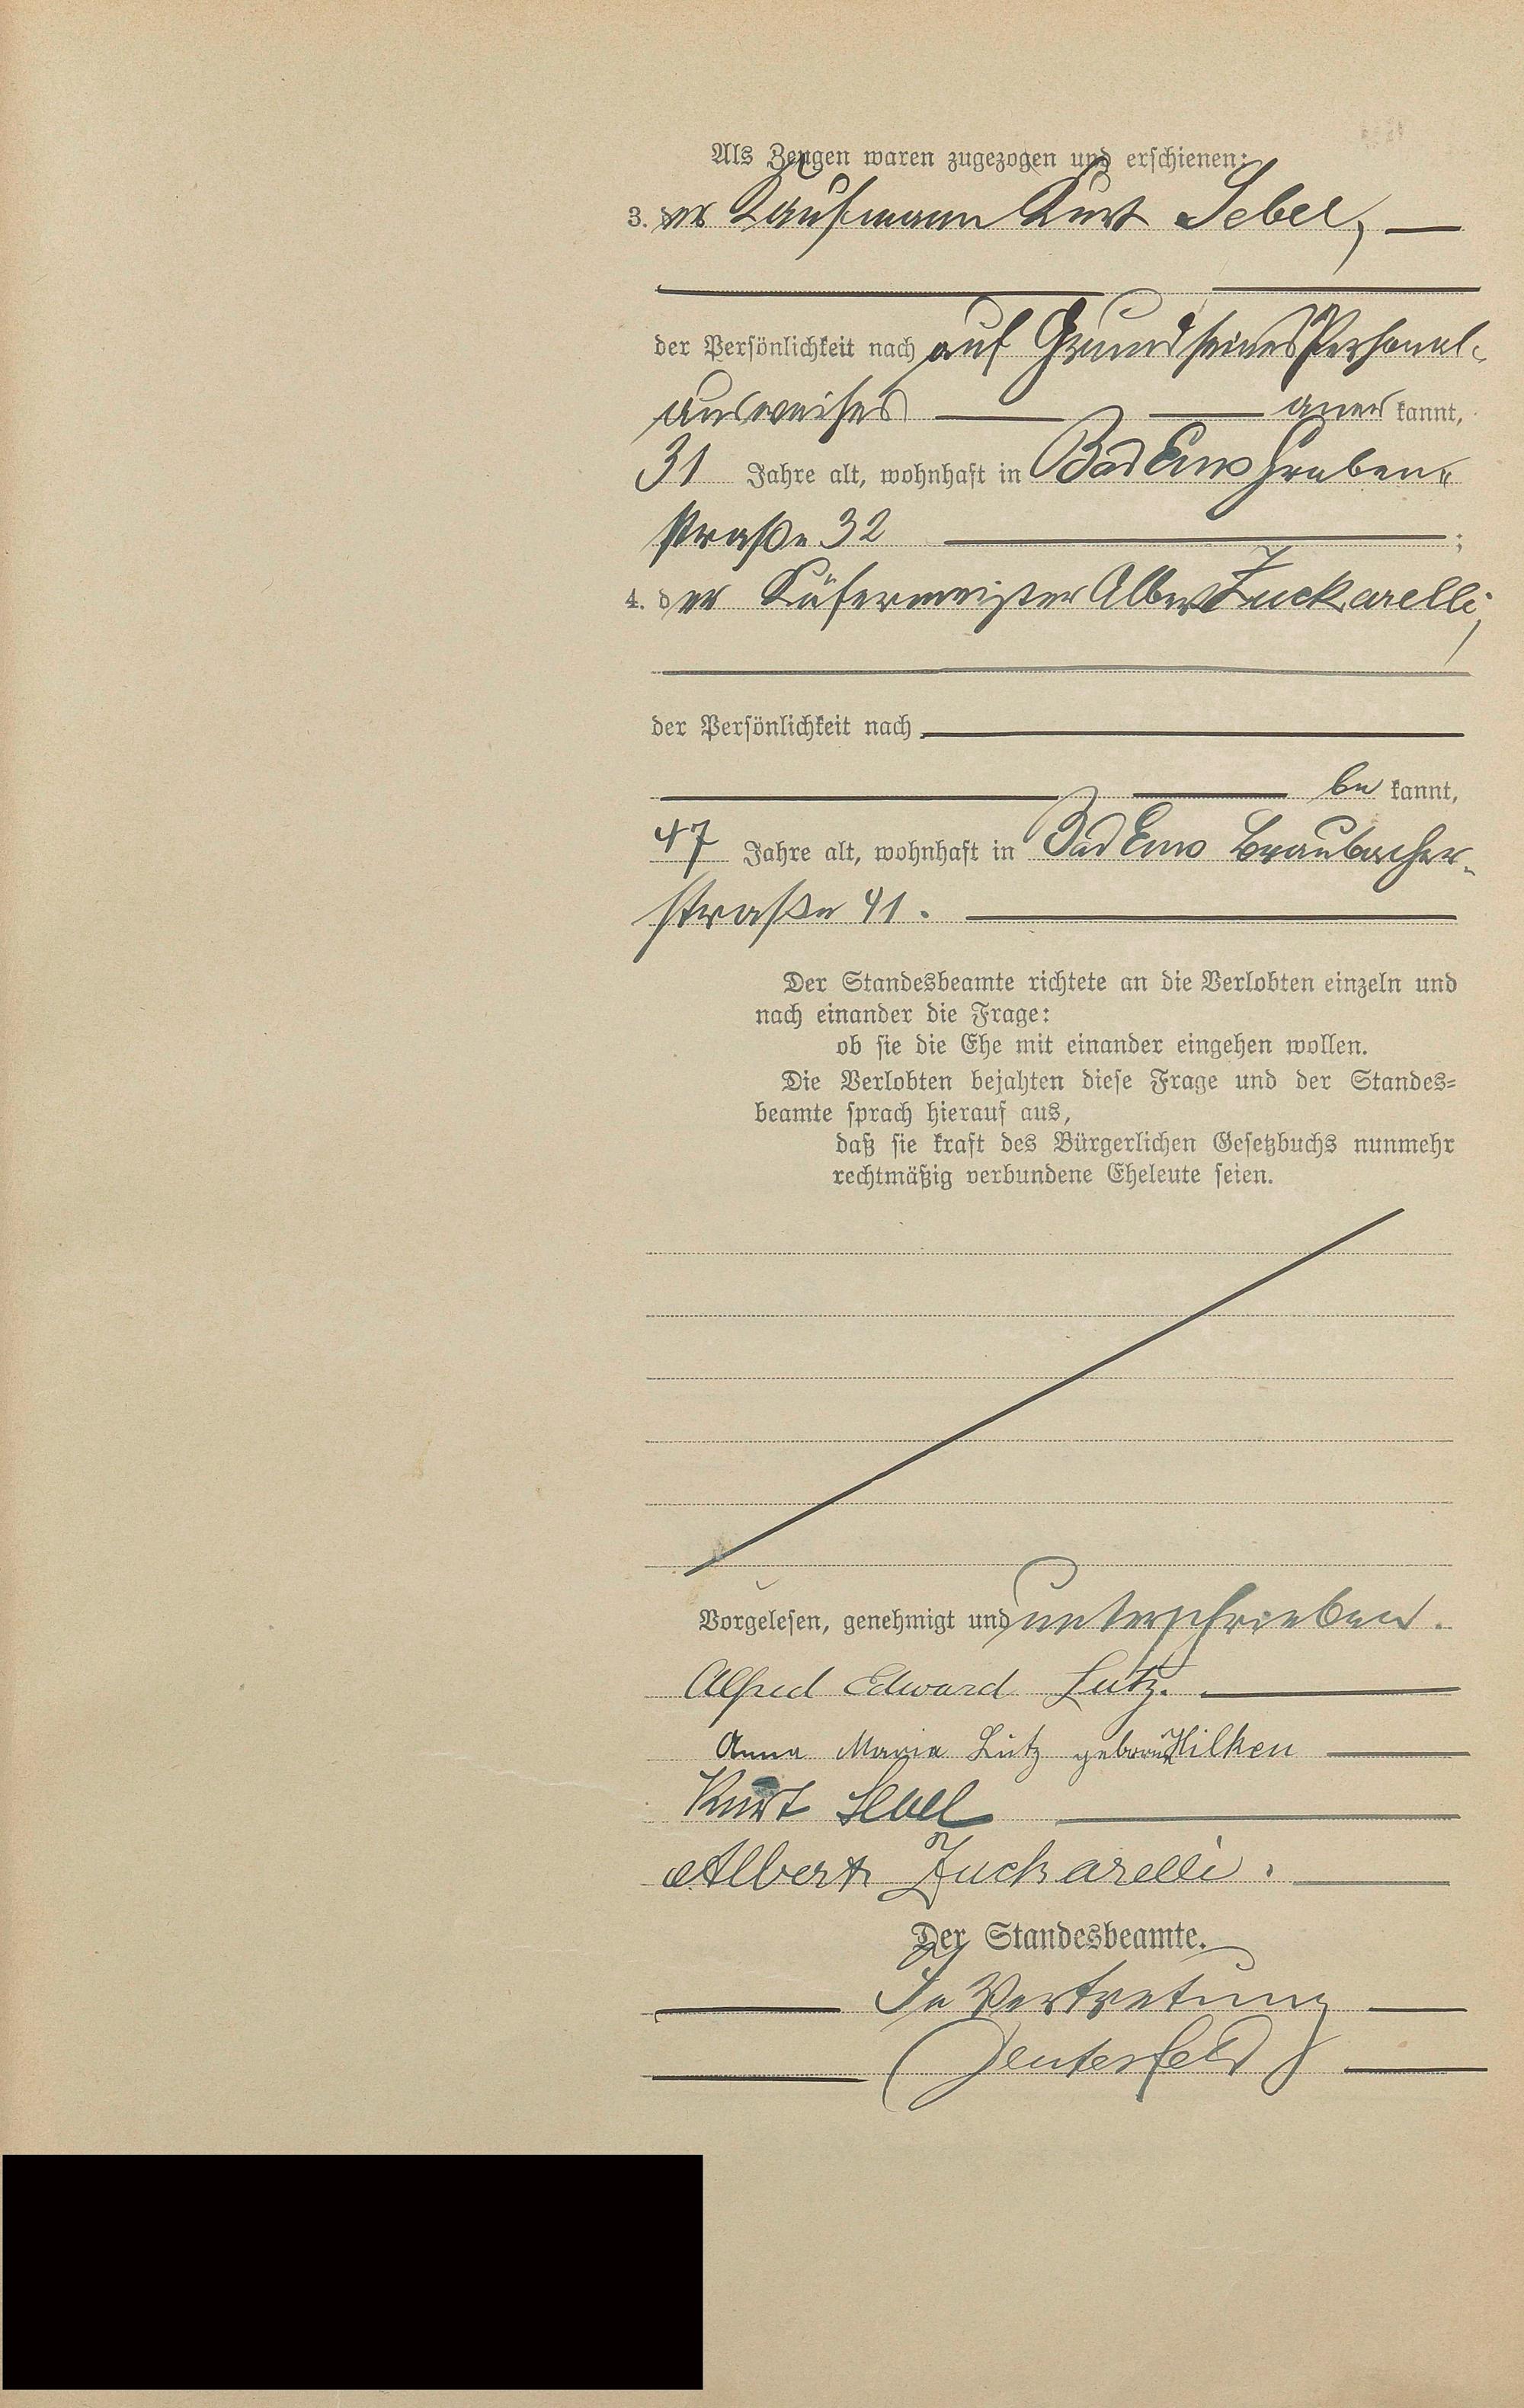 Als Zeugen waren zugezogen und erschienen:
3. der Kaufmann Kurt Sebel,
der Persönlichkeit nach auf Grund seines Personal-
ausweises anerkannt,
31 Jahre alt, wohnhaft in Bad Ems Graben-
straße 32;
4. der Küfermeister Albert Zuckarelli,
der Persönlichkeit nach
bekannt,
47 Jahre alt, wohnhaft in Bad Ems Braubacher-
straße 41.
Der Standesbeamte richtete an die Verlobten einzeln und
nach einander die Frage:
ob sie die Ehe mit einander eingehen wollen.
Die Verlobten bejahten diese Frage und der Standes-
beamte sprach hierauf aus,
daß sie kraft des Bürgerlichen Gesetzbuchs nunmehr
rechtmäßig verbundene Eheleute seien.
Vorgelesen, genehmigt und unterschrieben.
Alfred Edward Lutz.
Anna Maria Lutz geborne Hilken
Kurt Sebel
Albert Zuckarelli.
Der Standesbeamte.
In Vertretung